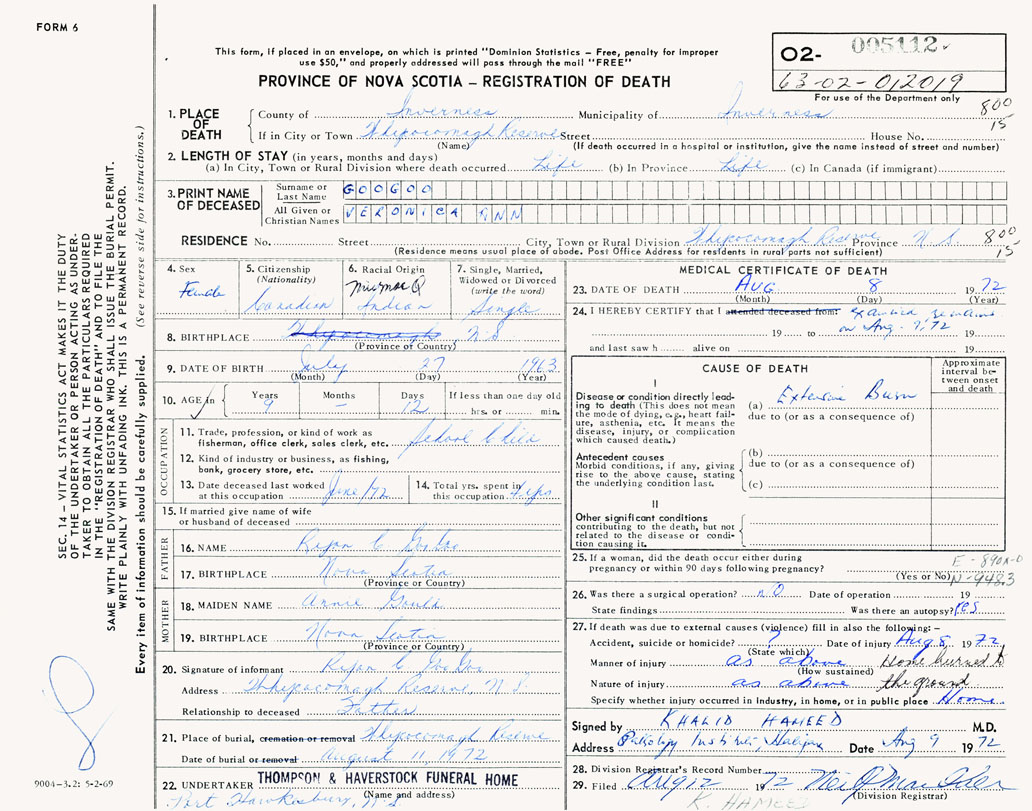 FORM 6
This form, if placed in an envelope, on which is printed "Dominion Statistics – Free, penalty for improper
use $50," and properly addressed will pass through the mail "FREE"
PROVINCE OF NOVA SCOTIA – REGISTRATION OF DEATH
O2- 005112
63-02-012019
For use of the Department only
1. PLACE OF DEATH
County of Inverness Municipality of Inverness 800
If in City or Town Whycocomagh Reserve Street House No. 15
(Name) (If death occurred in a hospital or institution, give the name instead of street and number)
2. LENGTH OF STAY (in years, months and days)
(a) In City, Town or Rural Division where death occurred Life (b) In Province Life (c) In Canada (if immigrant)
3. PRINT NAME OF DECEASED
Surname or Last Name GOOGOO
All Given or Christian Names VERONICA ANN
RESIDENCE No. Street City, Town or Rural Division Whycocomagh Reserve Province N.S. 800
(Residence means usual place of abode. Post Office Address for residents in rural parts not sufficient) 15
4. Sex Female
5. Citizenship (Nationality) Canadian
6. Racial Origin Micmac Indian
7. Single, Married, Widowed or Divorced (write the word) Single
8. BIRTHPLACE Whycocomagh, N.S
(Province or Country)
9. DATE OF BIRTH July 27 1963
(Month) (Day) (Year)
10. AGE in Years 9 Months – Days 12 If less than one day old hrs. or min.
OCCUPATION
11. Trade, profession, or kind of work as
fisherman, office clerk, sales clerk, etc. School Child
12. Kind of industry or business, as fishing,
bank, grocery store, etc.
13. Date deceased last worked at this occupation June/72
14. Total yrs. spent in this occupation 4 yrs
15. If married give name of wife
or husband of deceased
FATHER
16. NAME Ryan C Googoo
17. BIRTHPLACE Nova Scotia
(Province or Country)
MOTHER
18. MAIDEN NAME Annie Gould
19. BIRTHPLACE Nova Scotia
(Province or Country)
20. Signature of informant Ryan C Googoo
Address Whycocomagh Reserve, N.S.
Relationship to deceased Father
21. Place of burial, cremation or removal Whycocomagh Reserve
Date of burial or removal August 11, 1972
22. UNDERTAKER THOMPSON & HAVERSTOCK FUNERAL HOME
(Name and address)
Port Hawkesbury, N.S
MEDICAL CERTIFICATE OF DEATH
23. DATE OF DEATH Aug 8 1972
(Month) (Day) (Year)
24. I HEREBY CERTIFY that I attended deceased from: examined remains
19 to on Aug. 9, 72 19
and last saw h alive on 19
CAUSE OF DEATH
Approximate interval between onset and death
I
Disease or condition directly leading to death (This does not mean the mode of dying, e.g., heart failure, asthenia, etc. It means the disease, injury, or complication which caused death.)
(a) Extensive Burn
due to (or as a consequence of)
Antecedent causes
Morbid conditions, if any, giving rise to the above cause, stating the underlying condition last.
(b)
due to (or as a consequence of)
(c)
II
Other significant conditions
contributing to the death, but not related to the disease or condition causing it.
25. If a woman, did the death occur either during
pregnancy or within 90 days following pregnancy?
(Yes or No)
E-890X-0
N-948.3
26. Was there a surgical operation? NO Date of operation 19
State findings Was there an autopsy? Yes
27. If death was due to external causes (violence) fill in also the following: –
Accident, suicide or homicide? ? Date of injury Aug 8, 1972
(State which)
Manner of injury as above Home burned to
(How sustained)
Nature of injury as above the ground
Specify whether injury occurred in industry, in home, or in public place Home
Signed by KHALID HAMEED M.D.
Address Pathology Institute, Halifax Date Aug 9 1972
28. Division Registrar's Record Number
29. Filed Aug 12 1972
(Division Registrar)
K. HAMEED
SEC. 14 – VITAL STATISTICS ACT MAKES IT THE DUTY
OF THE UNDERTAKER OR PERSON ACTING AS UNDER-
TAKER TO OBTAIN ALL THE PARTICULARS REQUIRED
IN THE "REGISTRATION OF DEATH" AND TO FILE THE
SAME WITH THE DIVISION REGISTRAR WHO SHALL ISSUE THE BURIAL PERMIT.
WRITE PLAINLY WITH UNFADING INK. THIS IS A PERMANENT RECORD.
Every item of information should be carefully supplied. (See reverse side for instructions.)
9004-3.2: 5-2-69